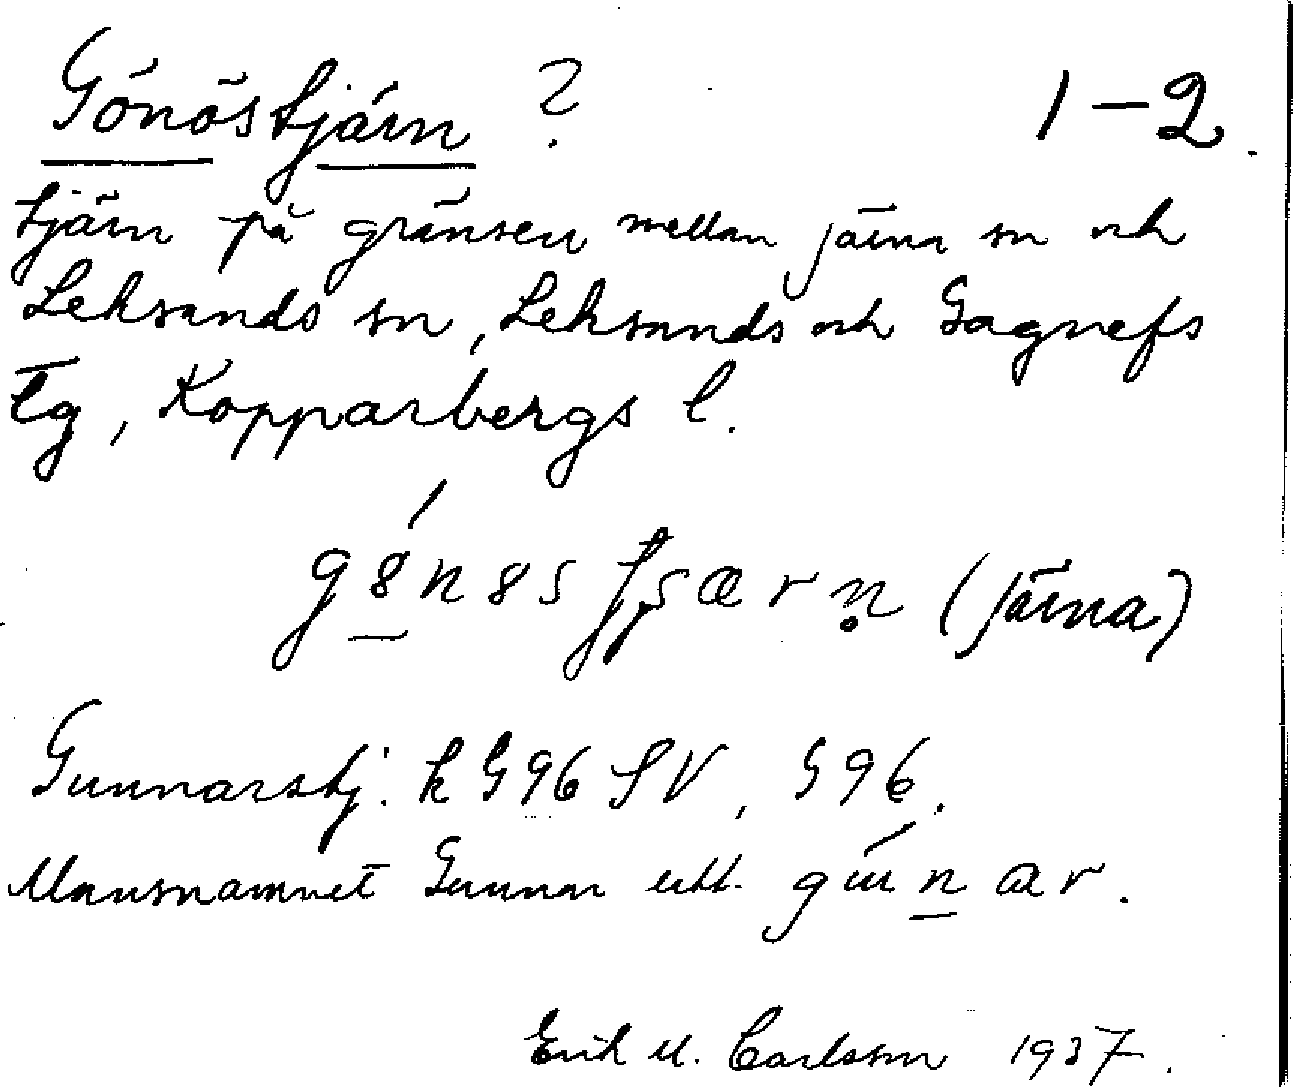 Gönöstjärn ? 1-2.
tjärn på gränsen mellan Järna sn och
Leksands sn, Leksands och Gagnefs
tg, Kopparbergs l.
(Järna)
Gunnarstj. k G96 SV, G96.
Mansnamnet Gunnar utt.
Erik M. Carlsson 1937.